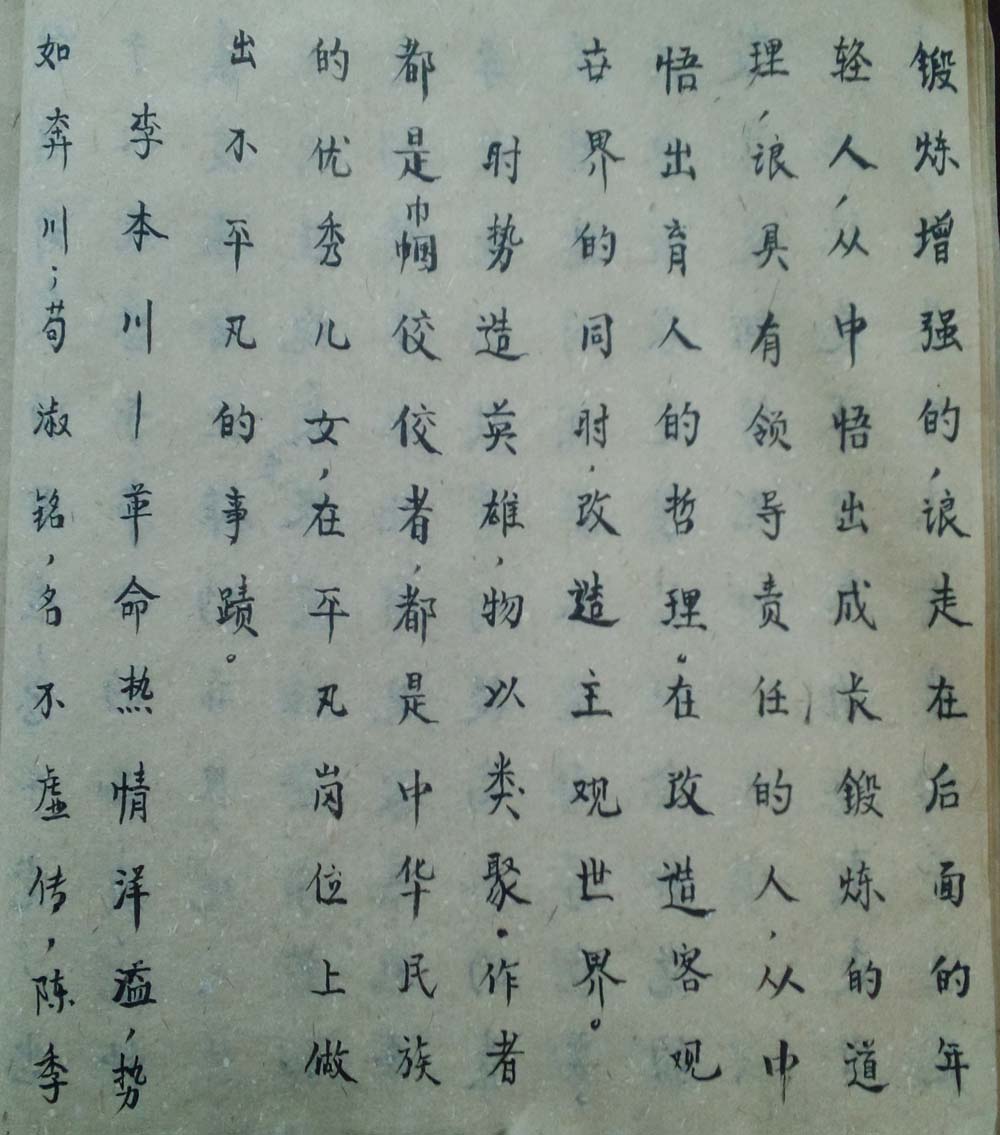 锻炼增强的,谅走在后面的年
轻人,从中悟出成长锻炼的道
理,谅具有领导责任的人,从中
悟出育人的哲理。在改造客观
世界的同时,改造主观世界。
时势造英雄,物以类聚.作者
都是巾帼佼佼者,都是中华民族
的优秀儿女,在平凡岗位上做
出不平凡的事蹟。
李本川—革命热情洋溢,势
如奔川;荀淑铭,名不虚传,陈季